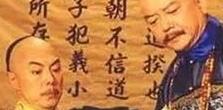 揆也
朝不信道
子犯義小
所存